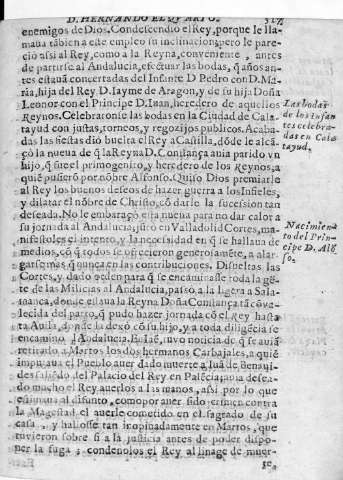 D. HERNANDO EL QVARTO. 317
enemigos de Dios. Condescendiò el Rey, porque le lla-
maua tãbien a este empleo su inclinacion; pero le pare-
ciò assi al Rey, como a la Reyna, conueniente, antes
de partirse al Andalucia, efectuar las bodas, q̃ años an-
tes estauã concertadas del Infante D. Pedro con D. Ma-
ria, hija del Rey D. Iayme de Aragon, y de su hija Doña
Leonor con el Principe D. Iuan, heredero de aquellos
Reynos. Celebraronse las bodas en la Ciudad de Cala-
tayud con justas, torneos, y regozijos publicos. Acaba-
das las fiestas diò buelta el Rey a Castilla, dõde le alcã-
çò la nueua de q̃ la Reyna D. Constança auia parido vn
hijo, q̃ fue el primogenito, y heredero de los Reynos, a
quiẽ pusierõ por nõbre Alfonso. Quiso Dios premiarle
al Rey los buenos deseos de hazer guerra a los Infieles,
y dilatar el nõbre de Christo, cõ darle la sucession tan
deseada. No le embaraçò esta nueua para no dar calor a
su jornada al Andalucia; jutò en Valladolid Cortes, ma-
nifestoles el intento, y la necessidad en q̃ se hallaua de
medios, cõ q̃ todos se ofrecieron generosamẽte, a alar-
garse mas q̃ nunca en las contribuciones. Disueltas las
Cortes, y dado orden para q̃ se encaminasse toda la gẽ-
te de las Milicias al Andalucia, passò a la ligera a Sala-
manca, donde estaua la Reyna Doña Constança tã cõva-
lecida del parto, q̃ pudo hazer jornada cõ el Rey hasta
Auila, donde la dexò cõ su hijo, y a toda diligẽcia se
encaminò Andalucia. En Iaẽ, tuvo noticia de q̃ se auiã
retirado a Martos los dos hermanos Carbajales, a quiẽ
imputaua el Pueblo auer dado muerte a Iuã de Benaui-
des saliẽdo del Palacio del Rey en Palẽcia; auia desea-
do mucho el Rey auerlos a las manos, assi por lo que
estimaua al difunto, como por auer sido crimen contra
la Magestad el auerle cometido en el sagrado de su
casa, y hallosse tan inopinadamente en Martos, que
tuvieron sobre si a la justicia antes de poder dispo-
ner la fuga: condenolos el Rey al linage de muer-
te,
Las bodas
de los infan
tes celebra-
das en Cala
tayud.
Nacimien
to del Prin-
cipe D. Alf
so.